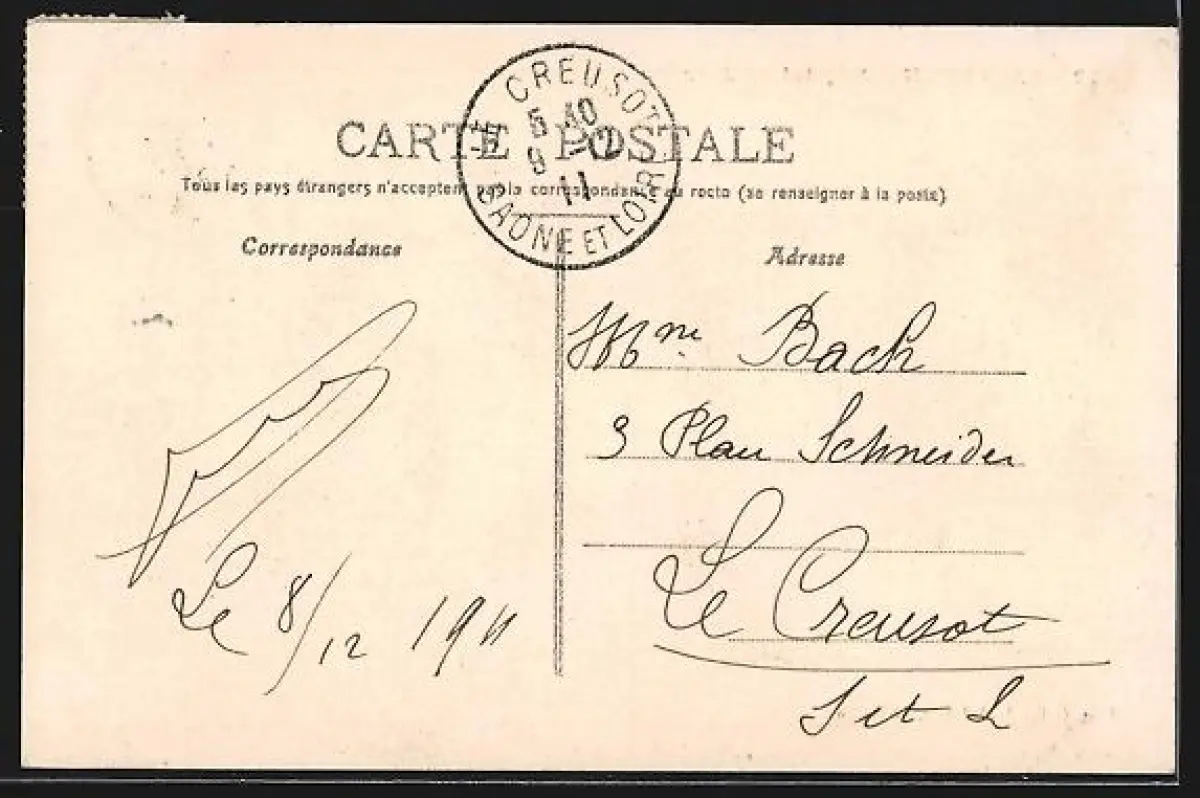 LE CREUSOT
5 40
9 -12
11
SAONE ET LOIRE
CARTE POSTALE
Tous les pays étrangers n'acceptent pas la correspondance au recto (se renseigner à la poste)
Correspondance
Adresse
Mme Bach
9 Place Schneider
Le Creusot
S et L
Le 8/12 1911